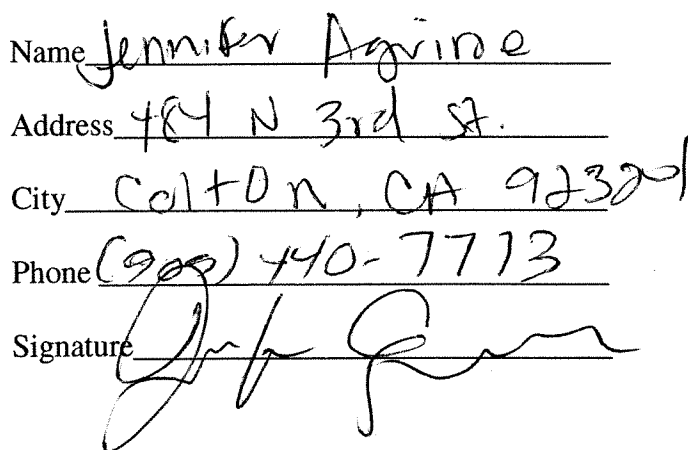 Name Jennifer Aguirre
Address 484 N 3rd St.
City Colton, CA
Phone (909) 440-7713
Signature